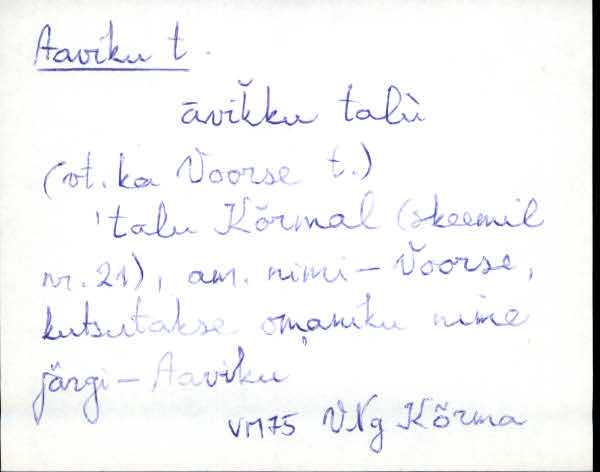 Aaviku t.
āvik̆ku talù
(vt. ka Voorse t.)
'talu Kõrmal (skeemil
nr. 21), am. nimi – Voorse,
kutsutakse omaniku nime
järgi – Aaviku
VM75 VNg Kõrma